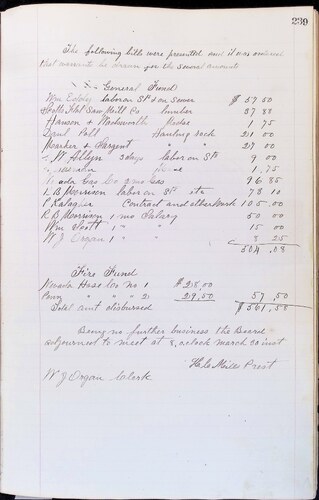 239
The following bills were presented and it was ordered
that warrants be drawn for the several amounts
General Fund
Wm labor on St & on Sewer $ 57 50
Saw Mill Co lumber 37 88
Hanson & Wadsworth 1 75
Hauling rock 21 00
& Sargent " " 27 00
W. Allyn 3 days labor on Sts 9 00
1.75
Gas Co Gas 96 85
L B Morrison labor on St etc 78 10
P Contract and other Work 105.00
R B Morrison 1 mo Salary 50 00
Wm Scott 1 " " 15 00
W J Organ 1 " " 3 25
504 .08
Fire Fund
Nevada Hose Co No 1 $ 28.00
" " " 2 29.50 57 .50
Total amt disbursed $ 561.58
Being no further business the Board
adjourned to meet at 8, oclock March 30 inst
Prest
W J Organ Clerk